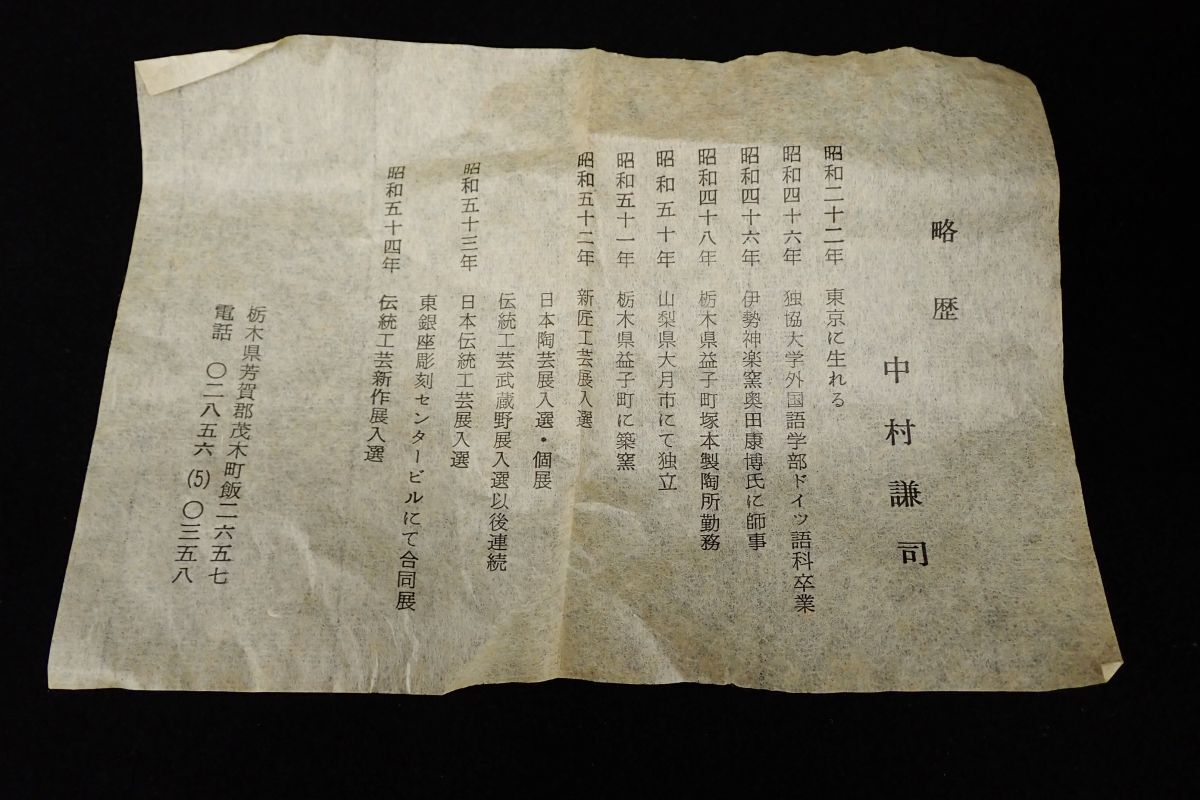 略歴
中村謙司
昭和二十二年 東京に生れる
昭和四十六年 独協大学外国語学部ドイツ語科卒業
昭和四十六年 伊勢神楽窯奥田康博氏に師事
昭和四十八年 栃木県益子町塚本製陶所勤務
昭和五十年 山梨県大月市にて独立
昭和五十一年 栃木県益子町に築窯
昭和五十二年 新匠工芸展入選
日本陶芸展入選・個展
伝統工芸武蔵野展入選以後連続
昭和五十三年 日本伝統工芸展入選
東銀座彫刻センタービルにて合同展
昭和五十四年 伝統工芸新作展入選
栃木県芳賀郡茂木町飯二六五七
電話 〇二八五六(5)〇三五八